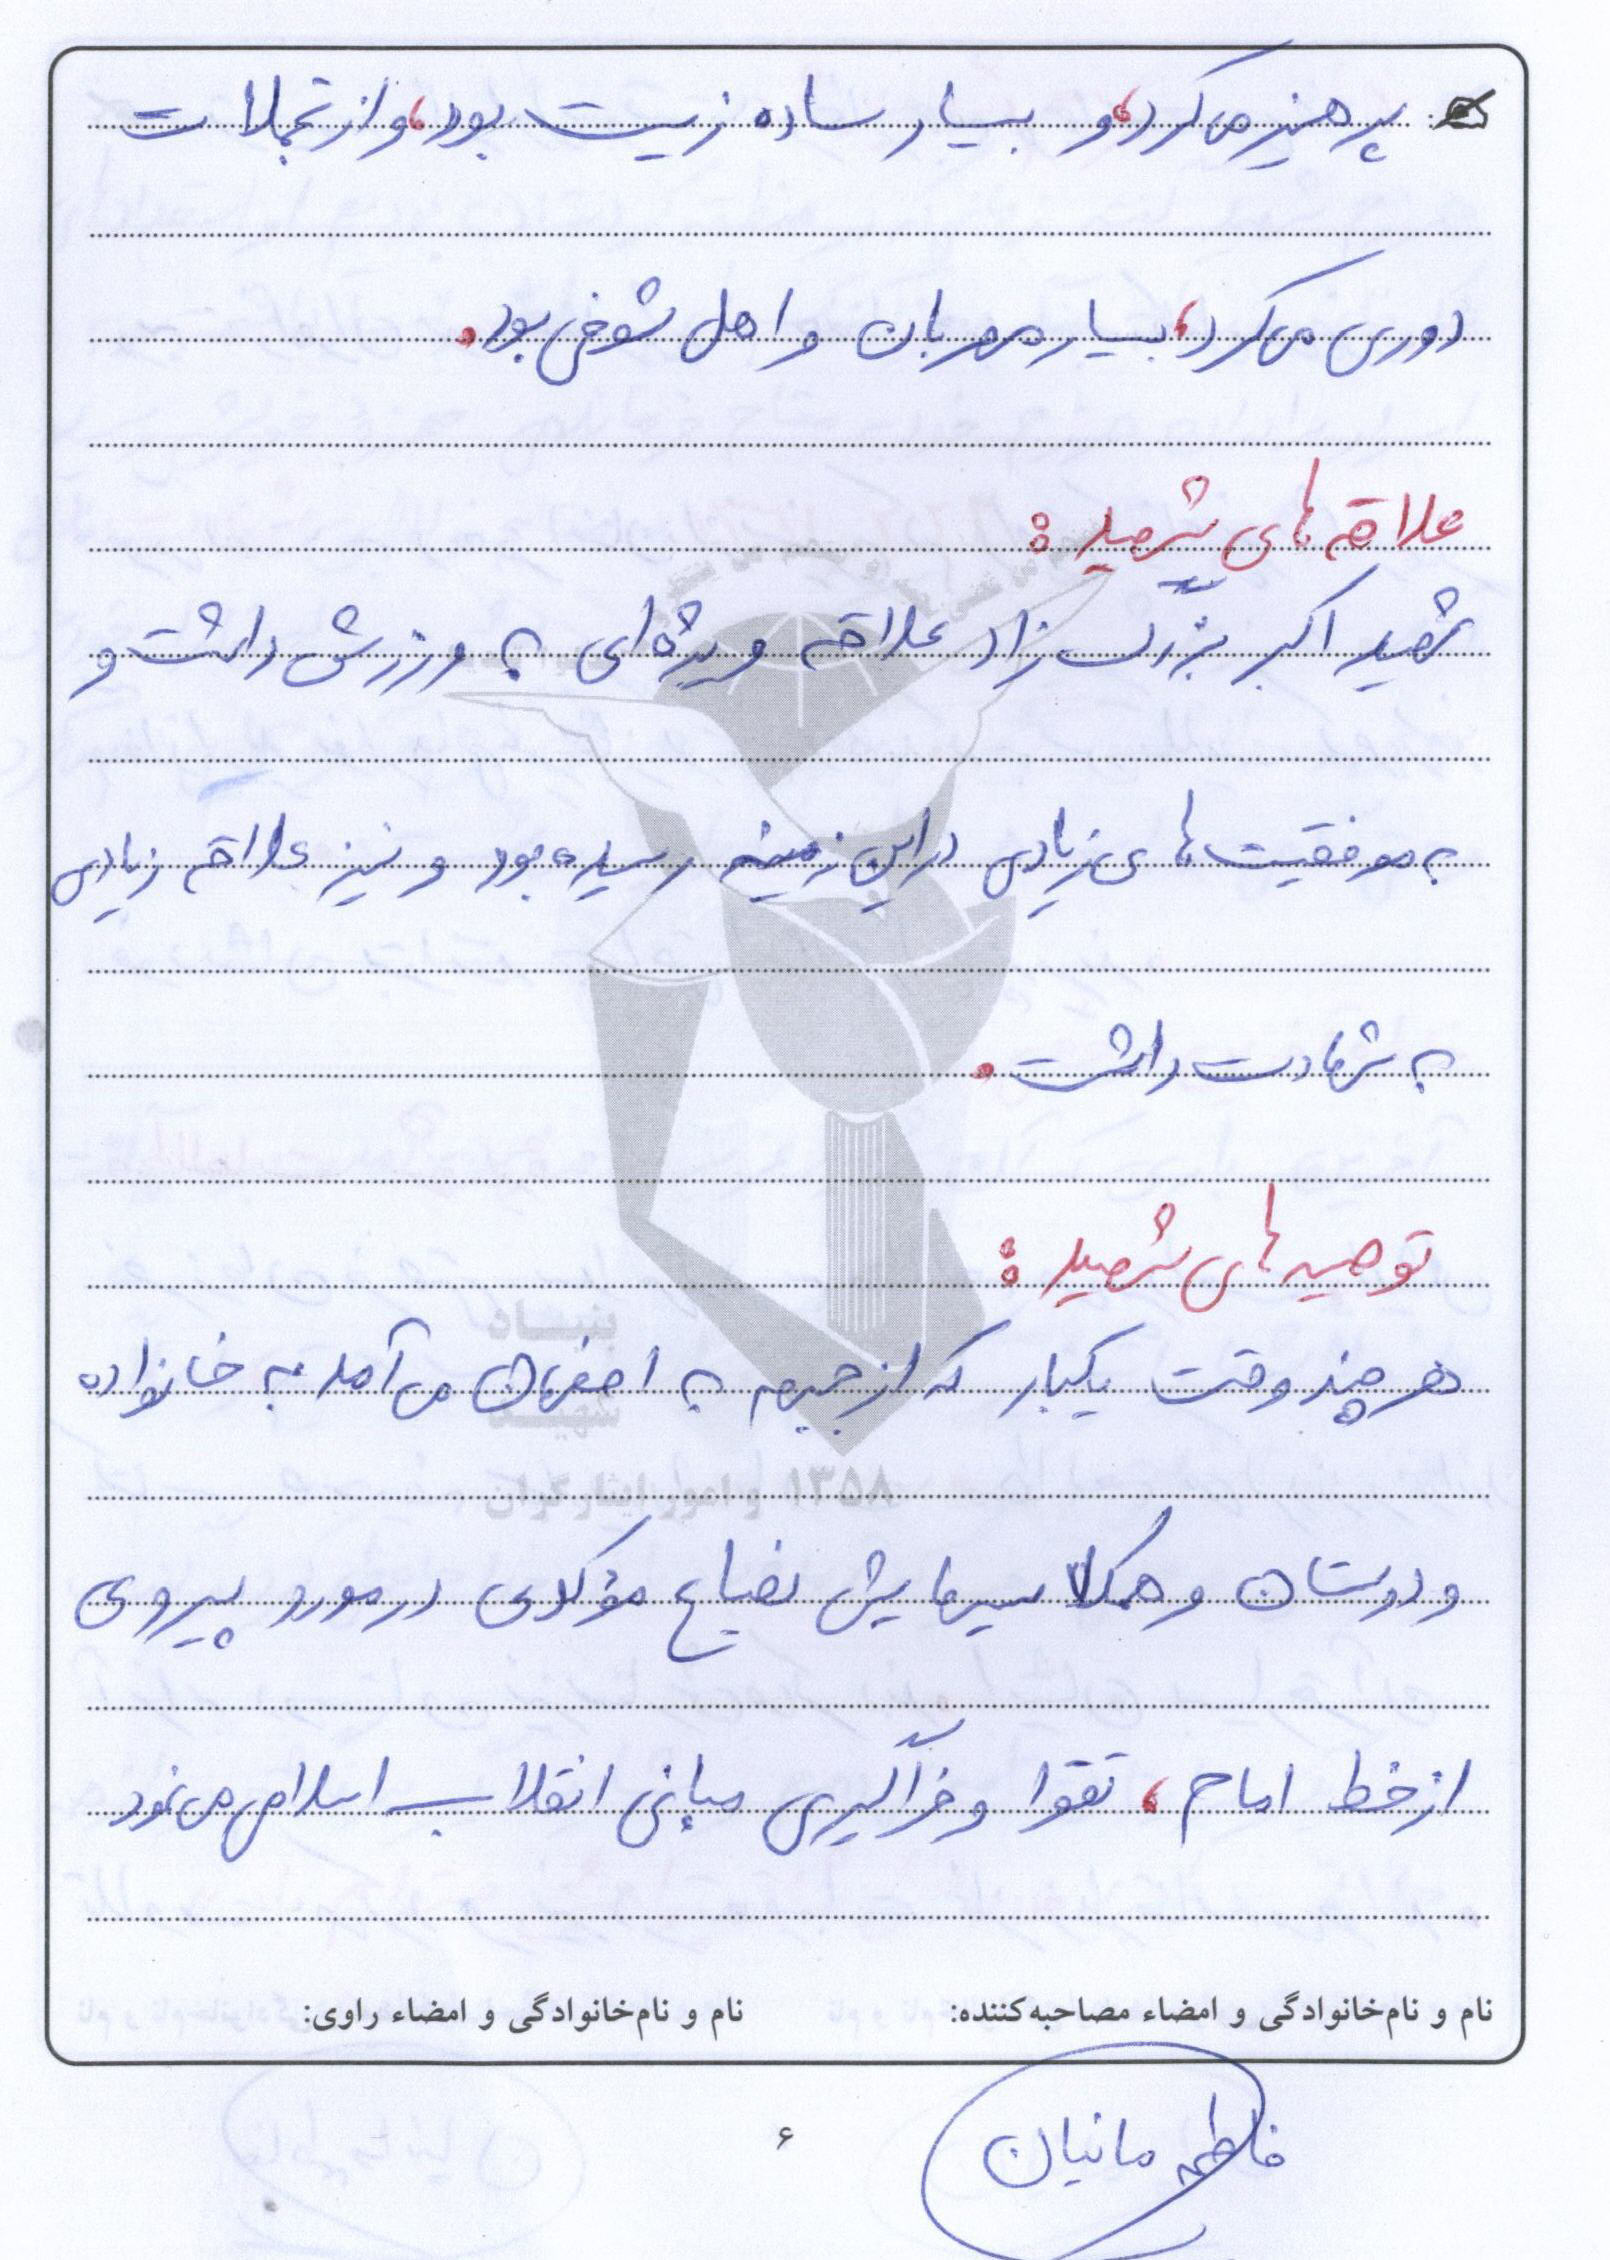 پرهیز می‌کرد، و بسیار ساده زیست بود، و از تجملات
دوری می‌کرد، بسیار مهربان و اهل شوخی بود.
علاقه‌های شهید:
شهید اکبر بزرگ زاد علاقه ویژه‌ای به ورزش داشت و
به موفقیت‌های زیادی در این زمینه رسیده بود و نیز علاقه زیادی
به شهادت داشت.
توصیه‌های شهید:
هر چند وقت یکبار که از جبهه به اصفهان می‌آمد به خانواده
و دوستان و همکلاسیهایش نصایح مؤکدی در مورد پیروی
از خط امام، تقوا و فراگیری مبانی انقلاب اسلامی می‌نمود
بنیاد
شهید
۱۳۵۸ و امور ایثارگران
نام و نام‌خانوادگی و امضاء مصاحبه‌کننده: نام و نام‌خانوادگی و امضاء راوی:
فاطمه مانیان
۶